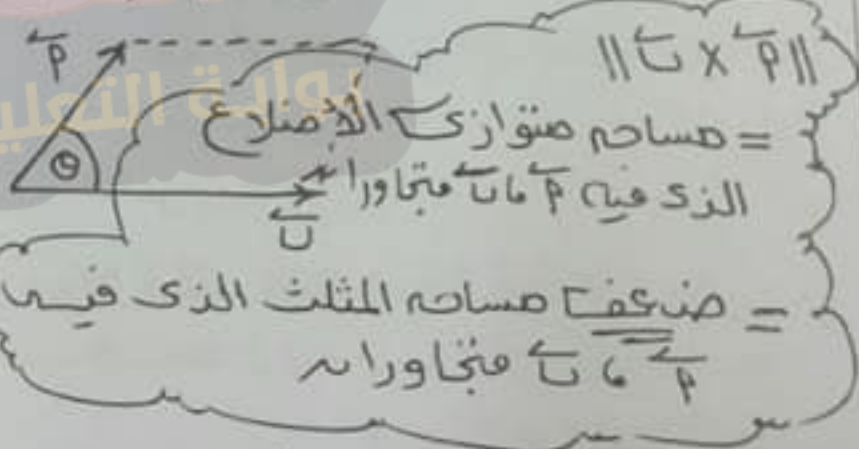 ‖ أ × ب ‖
= مساحه متوازى الأضلاع
الذى فيه أ ، ب متجاوران
= ضعف مساحه المثلث الذى فيه
أ ، ب متجاوران
أ
θ
ب
بوابة التعليم